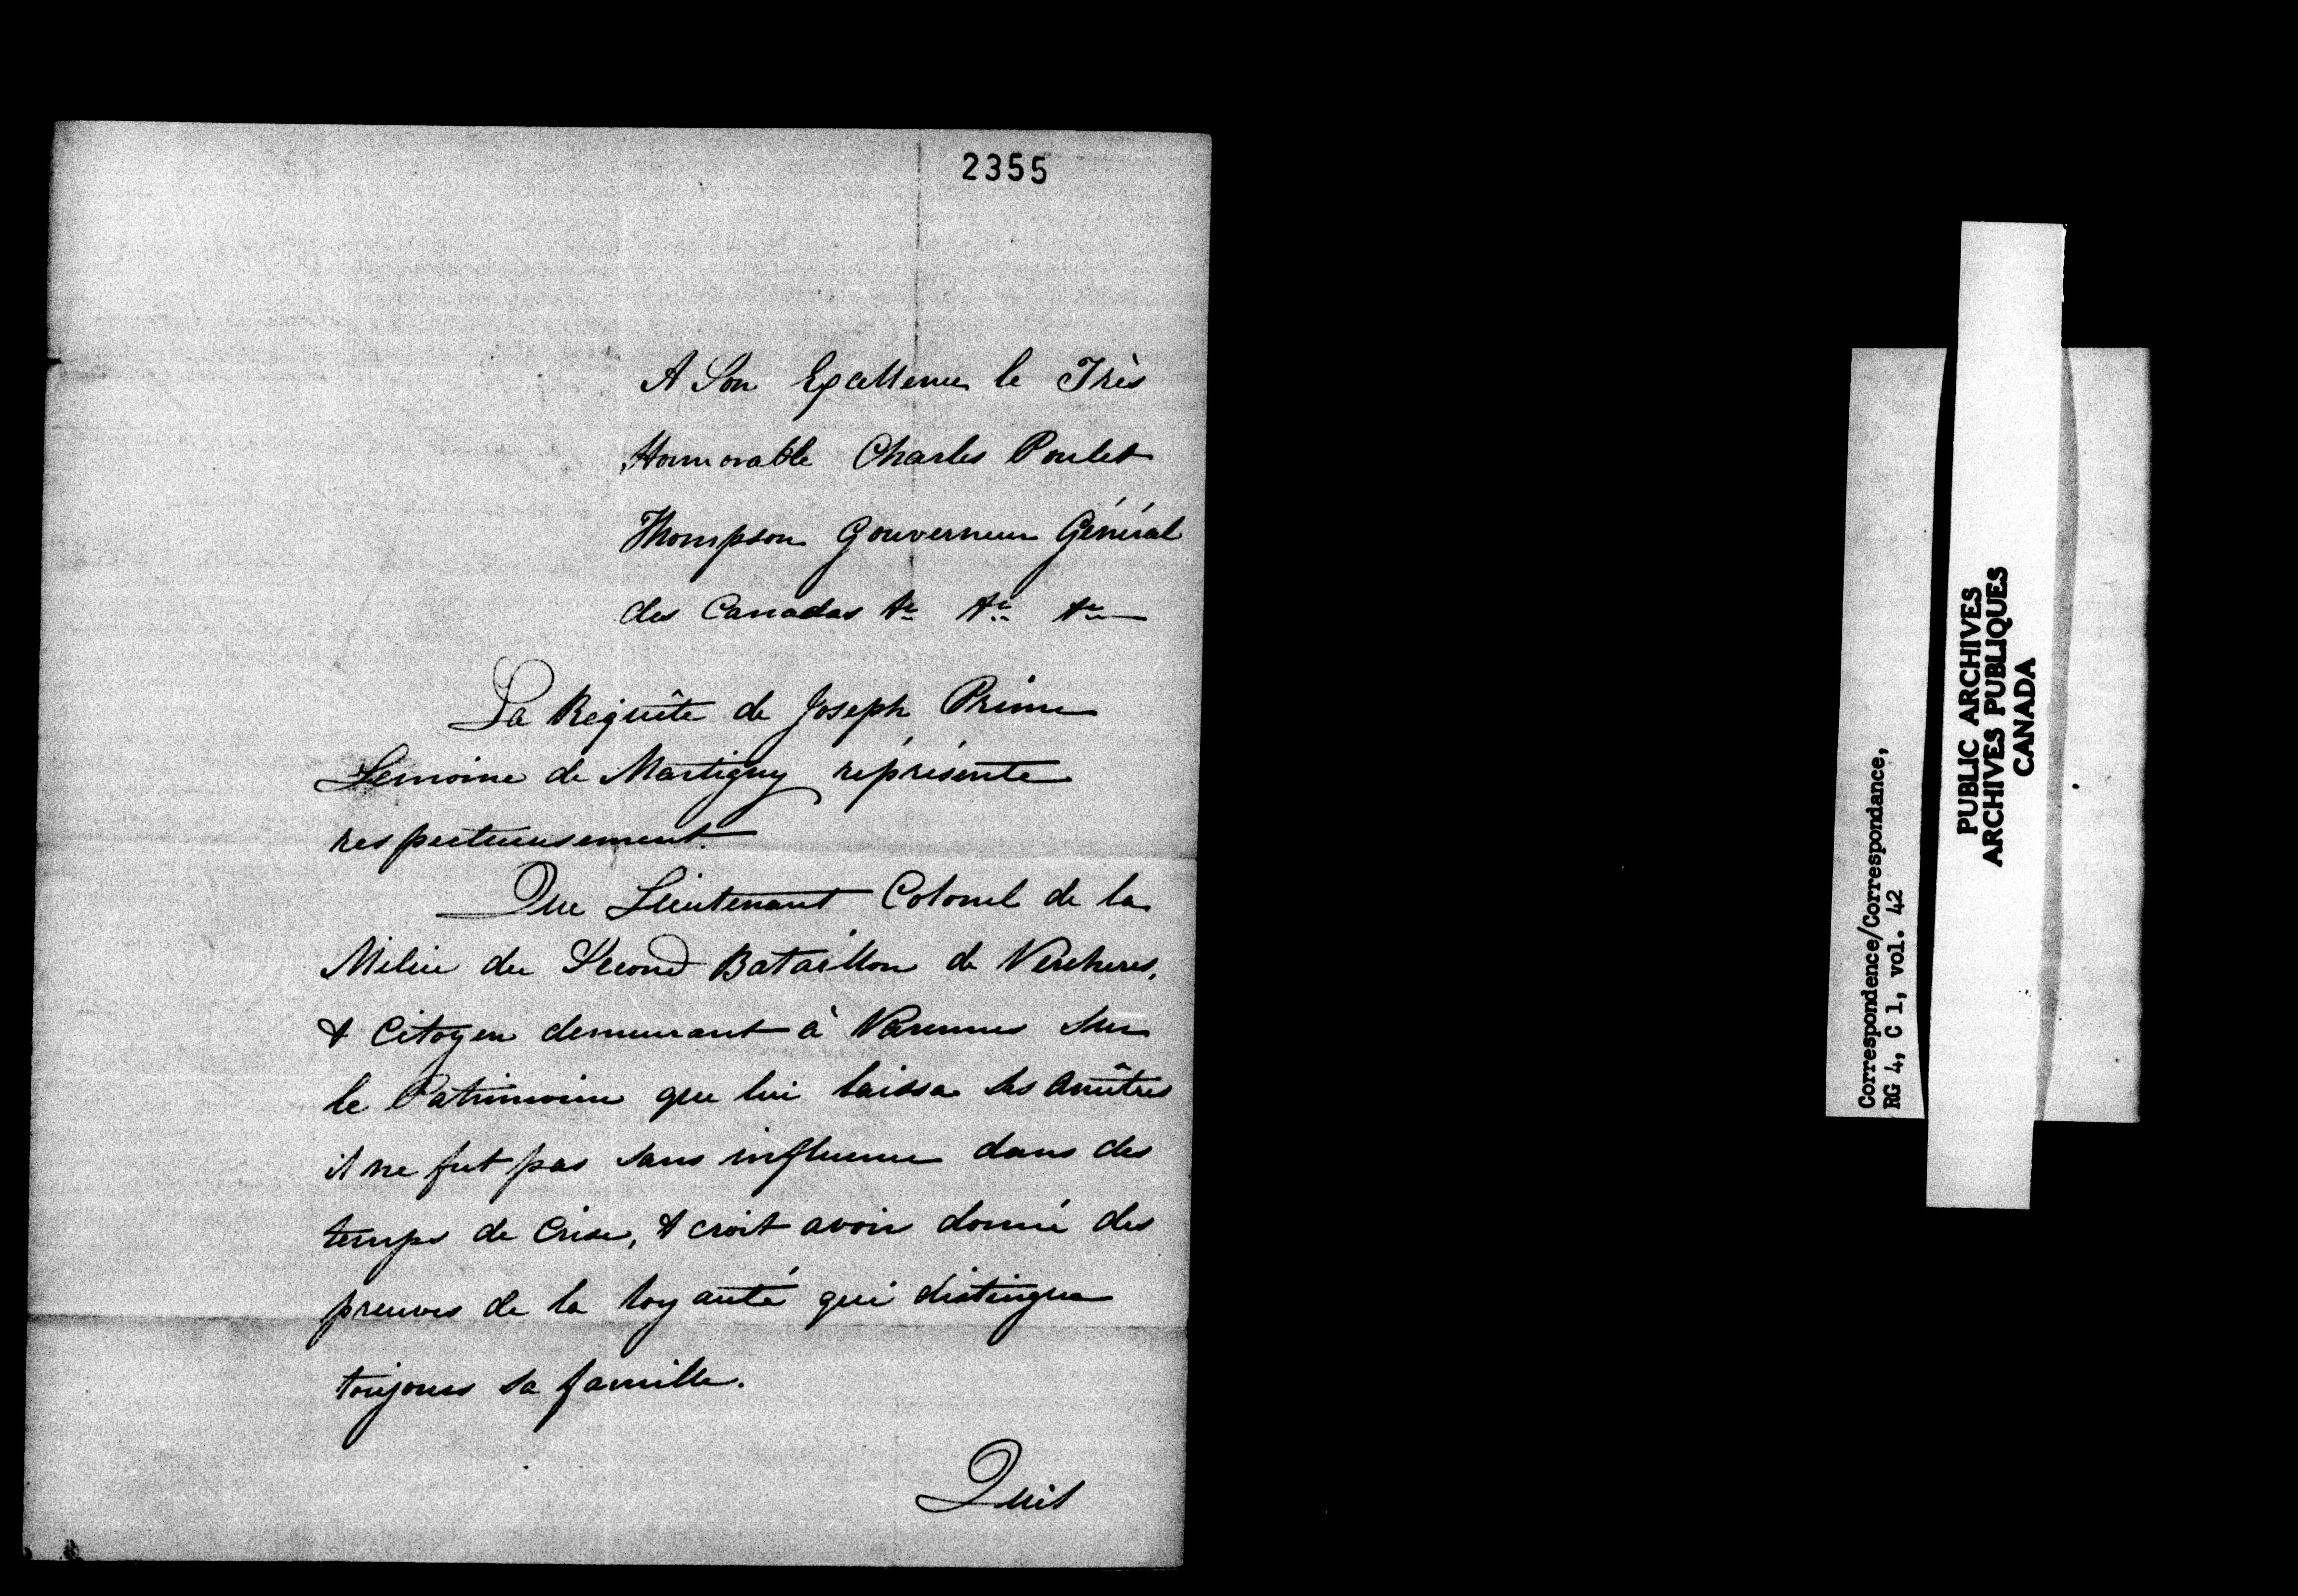 2355
A Son Excellence le Très
Honnorable Charles Poulet
Thompson Gouverneur Général
des Canadas &c &c &c
La Requête de Joseph Prime
Lemoine de Martigny réprésente
respectueusement.
Que Lieutenant Colonel de la
Milice du Second Bataillon de Verchères,
& Citoyen demeurant à Varennes sur
le Patrimoine que lui laissa ses Ancêtres
il ne fut pas sans influence dans des
temps de Crise, & croit avoir donné des
preuves de la loyauté qui distingua
toujours sa famille.
Quil
Correspondence/Correspondance,
RG 4, C 1, vol. 42
PUBLIC ARCHIVES
ARCHIVES PUBLIQUES
CANADA